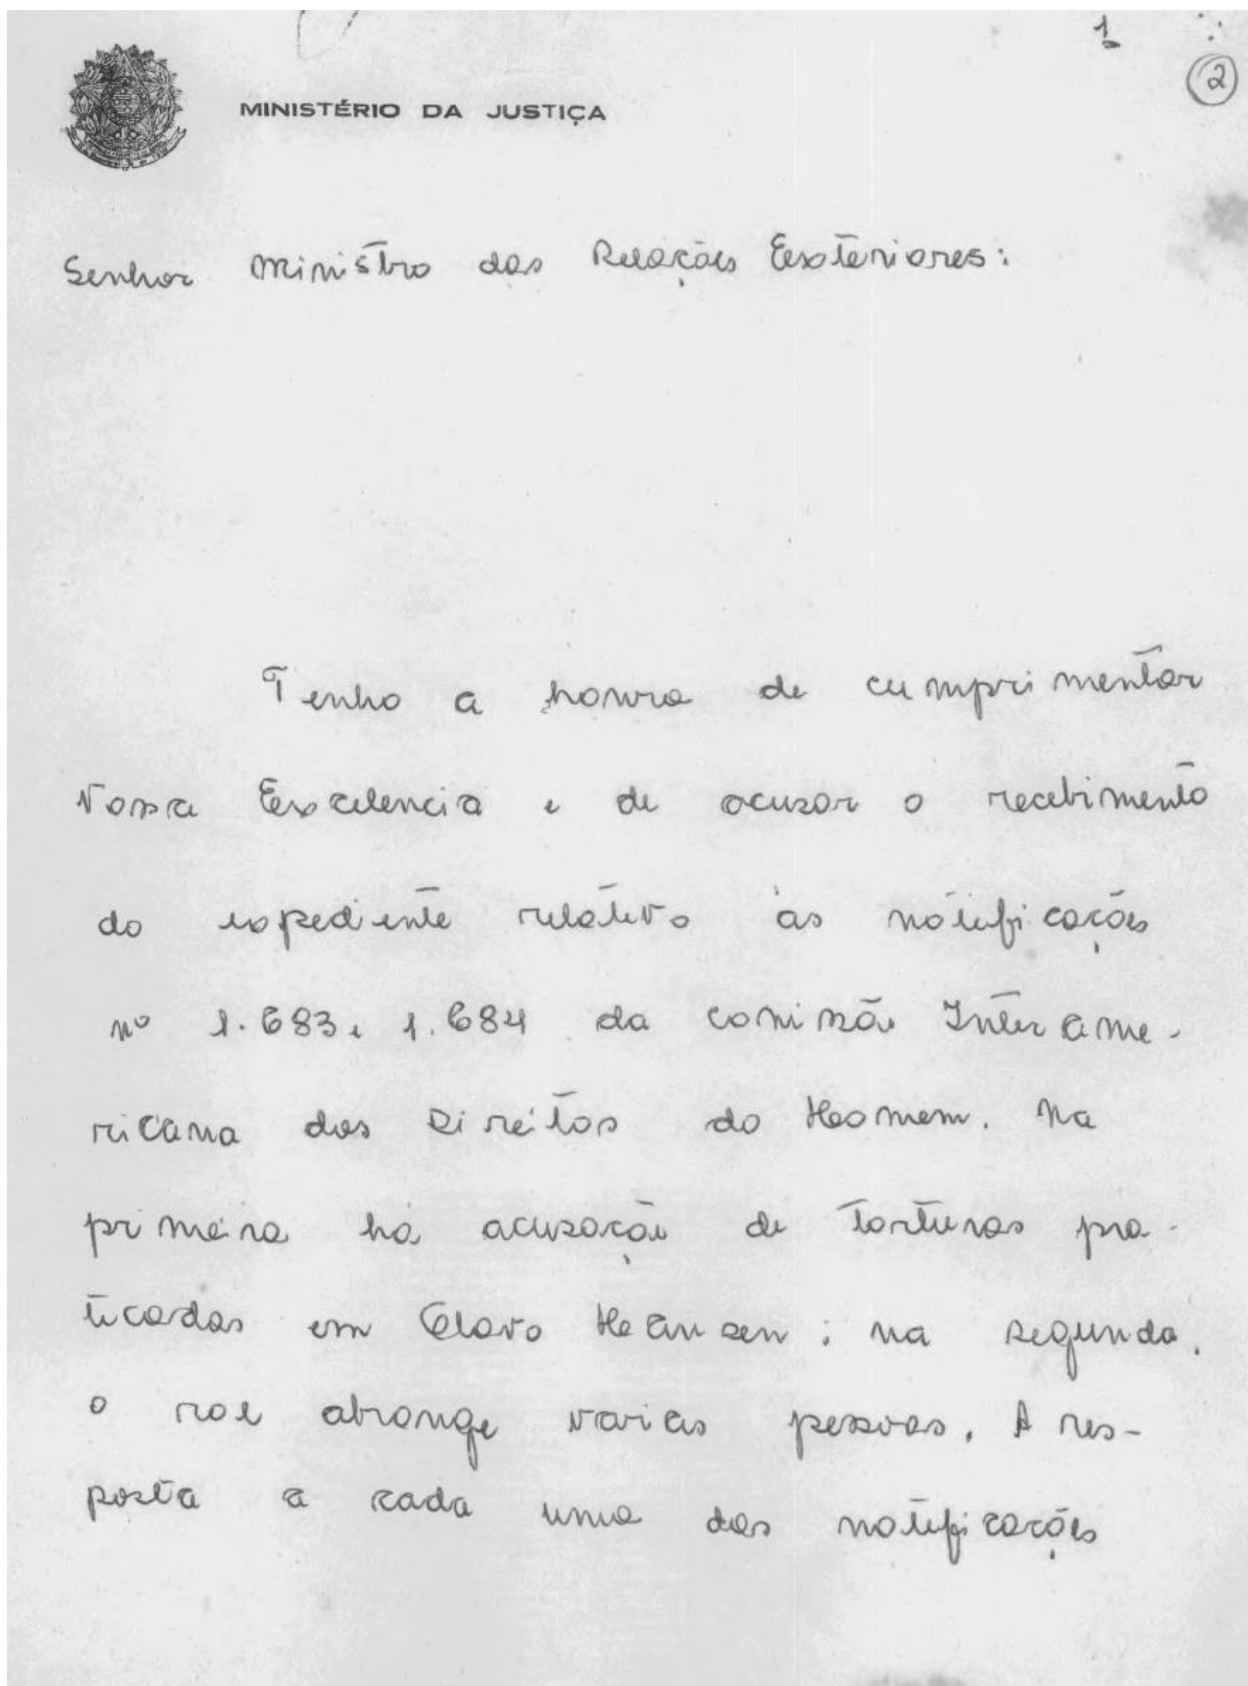 1
2
MINISTÉRIO DA JUSTIÇA
Senhor Ministro das Relações Exteriores:
Tenho a honra de cumprimentar
Vossa Excelencia e de acusar o recebimento
do expediente relativo às notificações
nº 1.683 e 1.684 da Comissão Interame-
ricana dos Direitos do Homem. Na
primeira há acusação de torturas pra-
ticadas em Olavo Hansen; na segunda,
o rol abrange varias pessoas. A res-
posta a cada uma das notificações